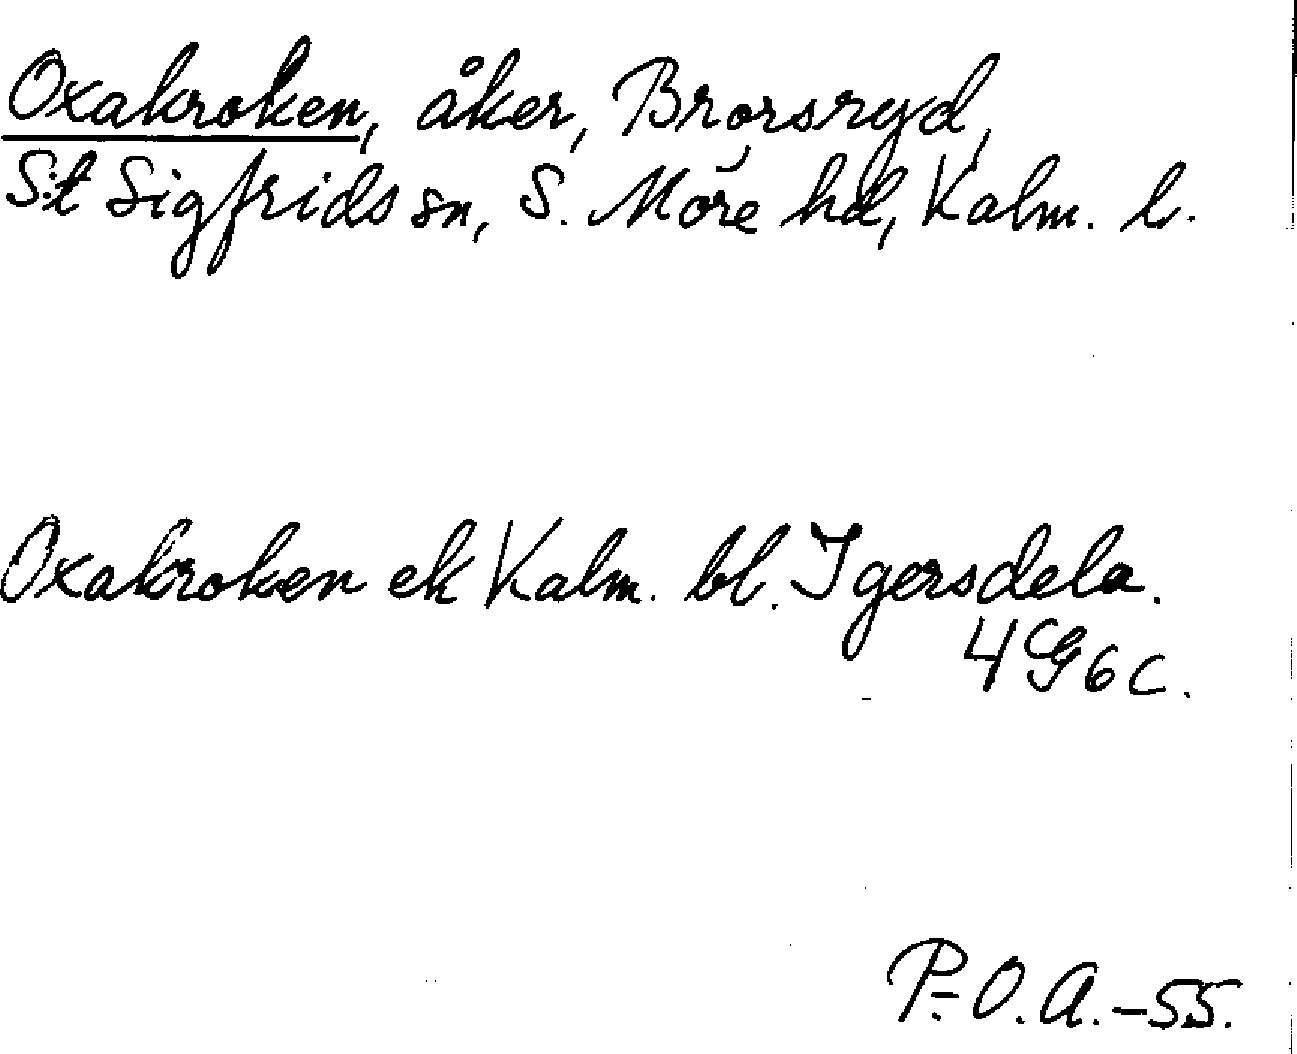 Oxakroken, åker, Brorsryd,
S:t Sigfrids sn, S. Möre hd, Kalm. l.
Oxakroken ek Kalm. bl. Igersdela.
4G6c.
P.-O.A.-55.